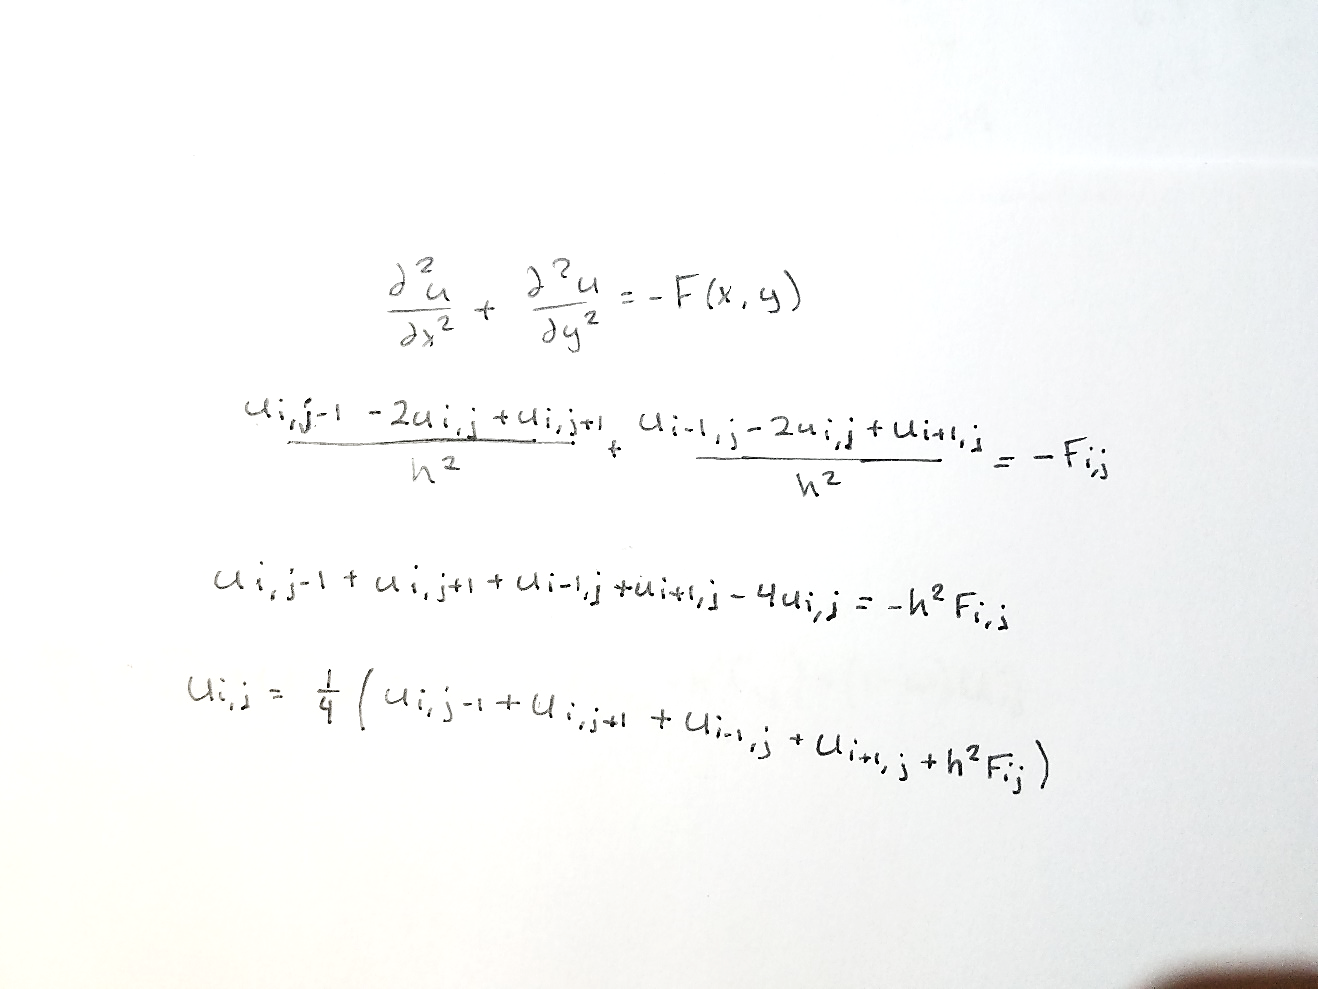 ∂²u/∂x² + ∂²u/∂y² = -F(x,y)
(u_{i,j-1} - 2u_{i,j} + u_{i,j+1})/h² + (u_{i-1,j} - 2u_{i,j} + u_{i+1,j})/h² = -F_{i,j}
u_{i,j-1} + u_{i,j+1} + u_{i-1,j} + u_{i+1,j} - 4u_{i,j} = -h² F_{i,j}
u_{i,j} = 1/4 (u_{i,j-1} + u_{i,j+1} + u_{i-1,j} + u_{i+1,j} + h² F_{i,j})